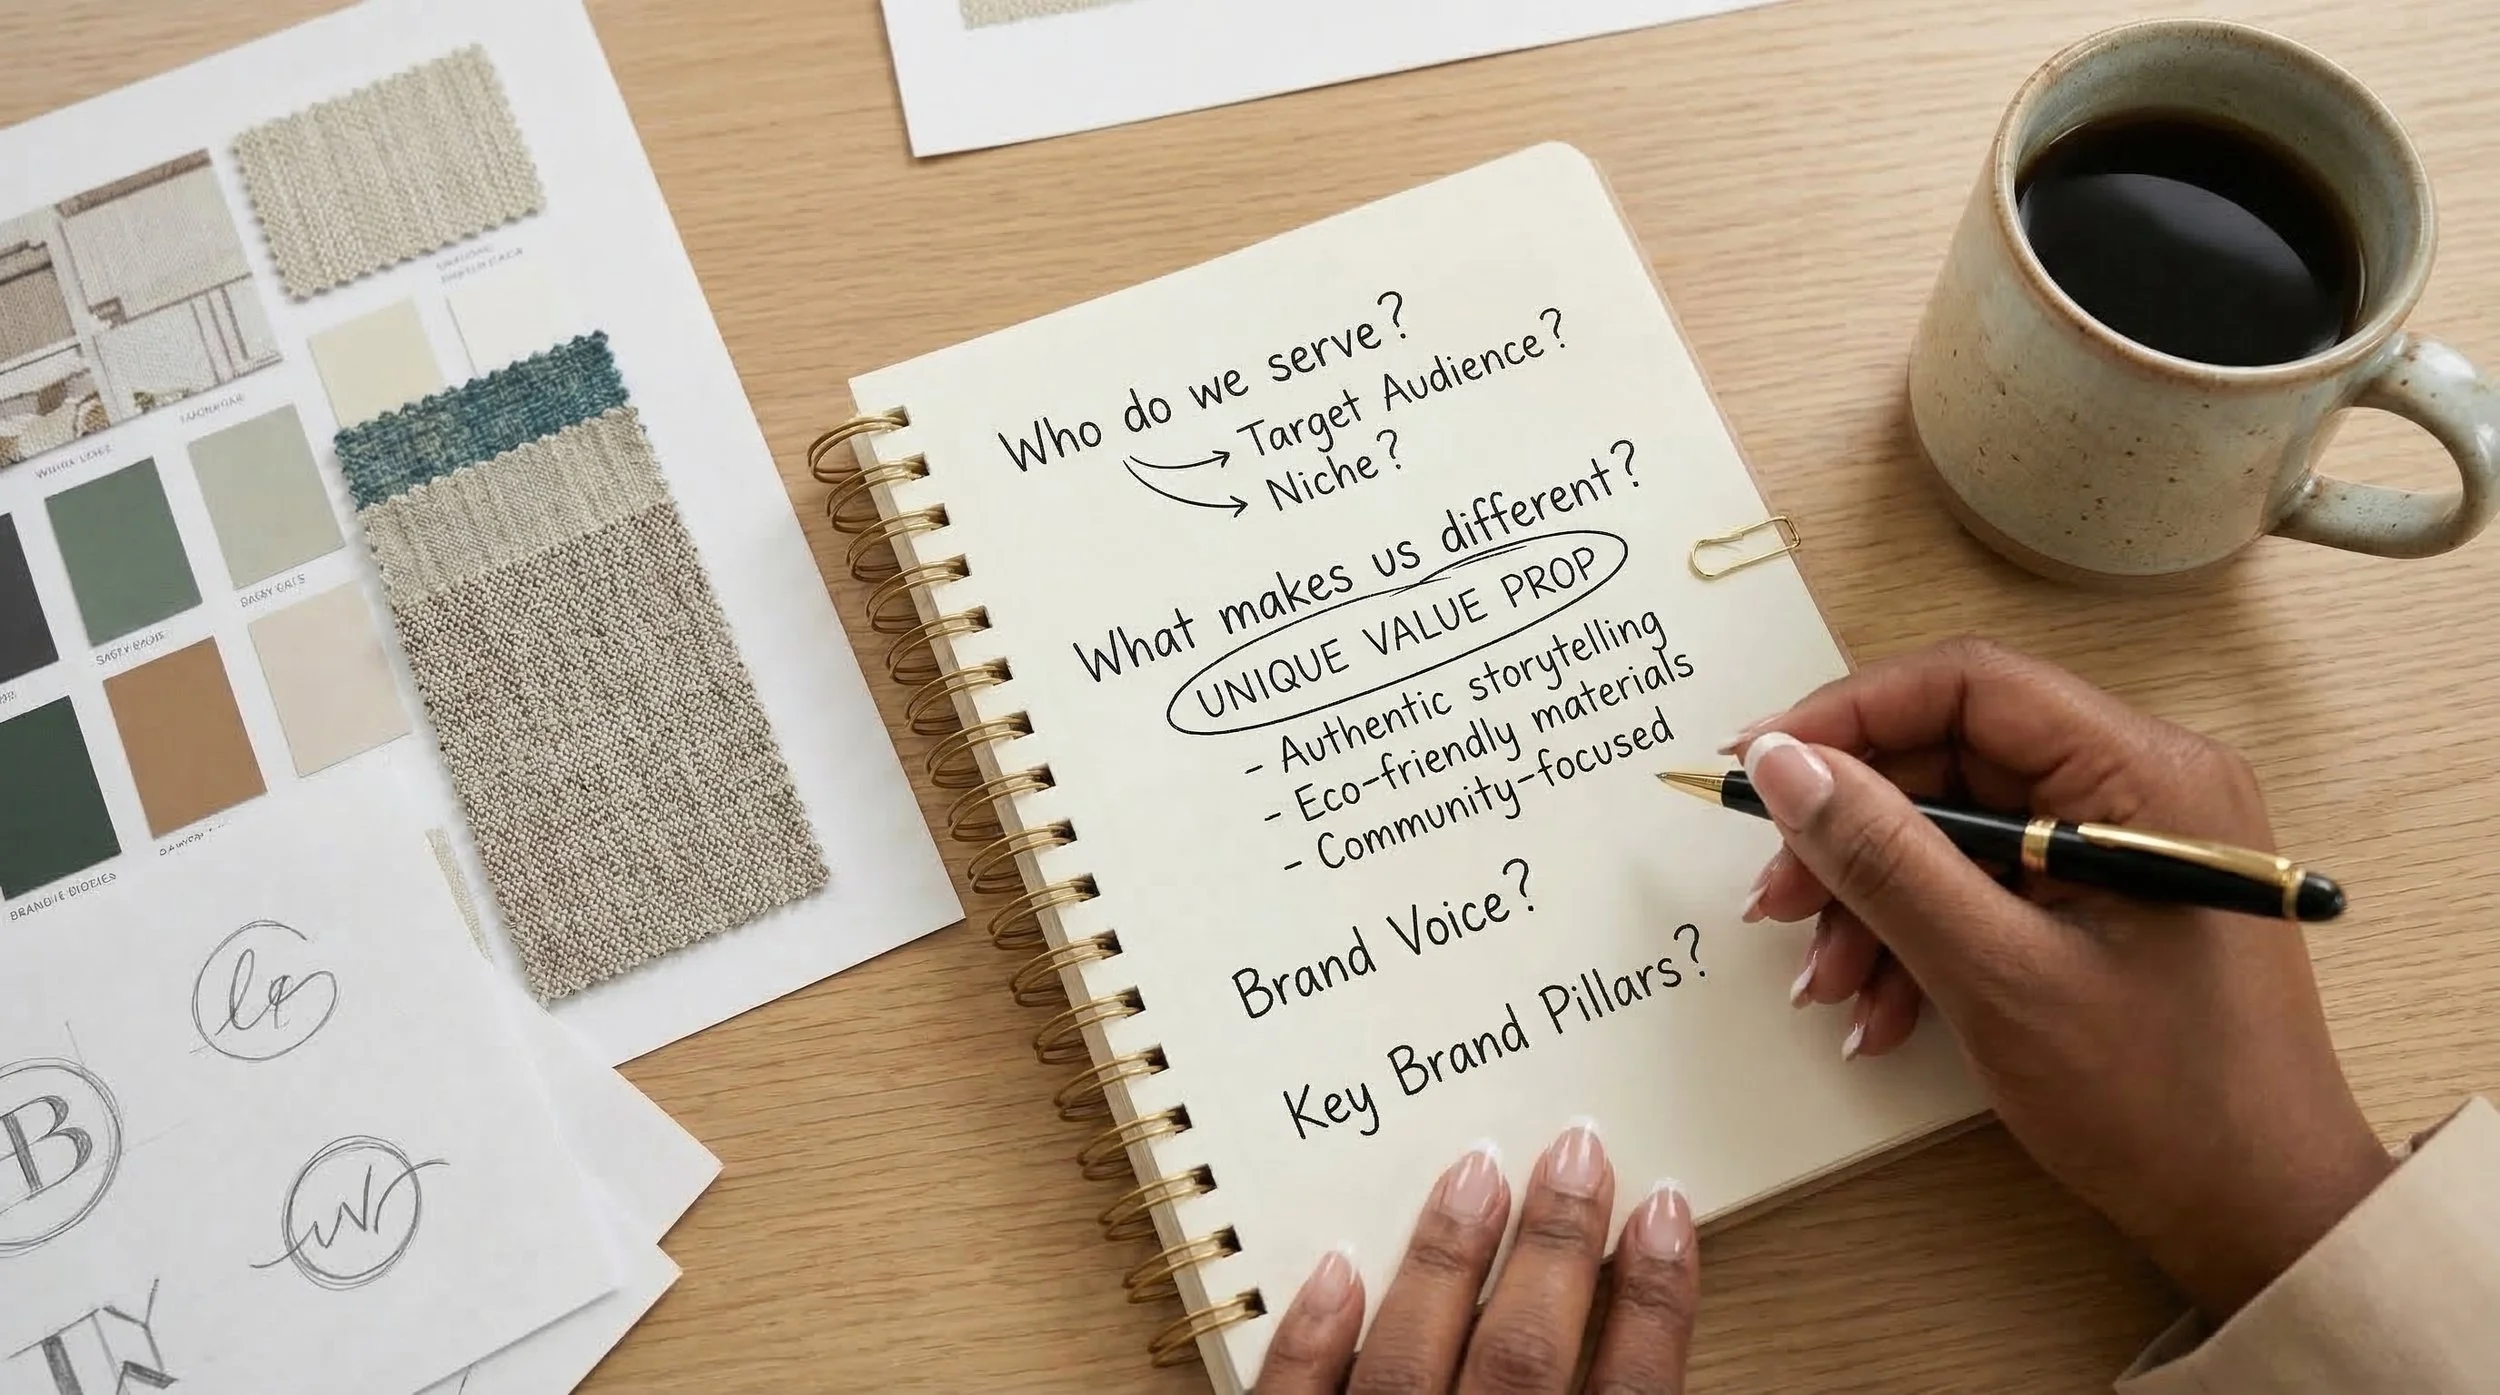 Who do we serve?
Target Audience?
Niche?
What makes us different?
UNIQUE VALUE PROP
- Authentic storytelling
- Eco-friendly materials
- Community-focused
Brand Voice?
Key Brand Pillars?
B